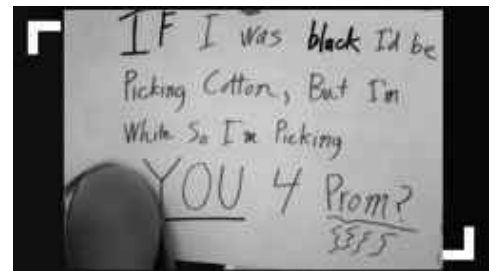 IF I was black I'd be
Picking Cotton, But I'm
White So I'm Picking
YOU 4 Prom?